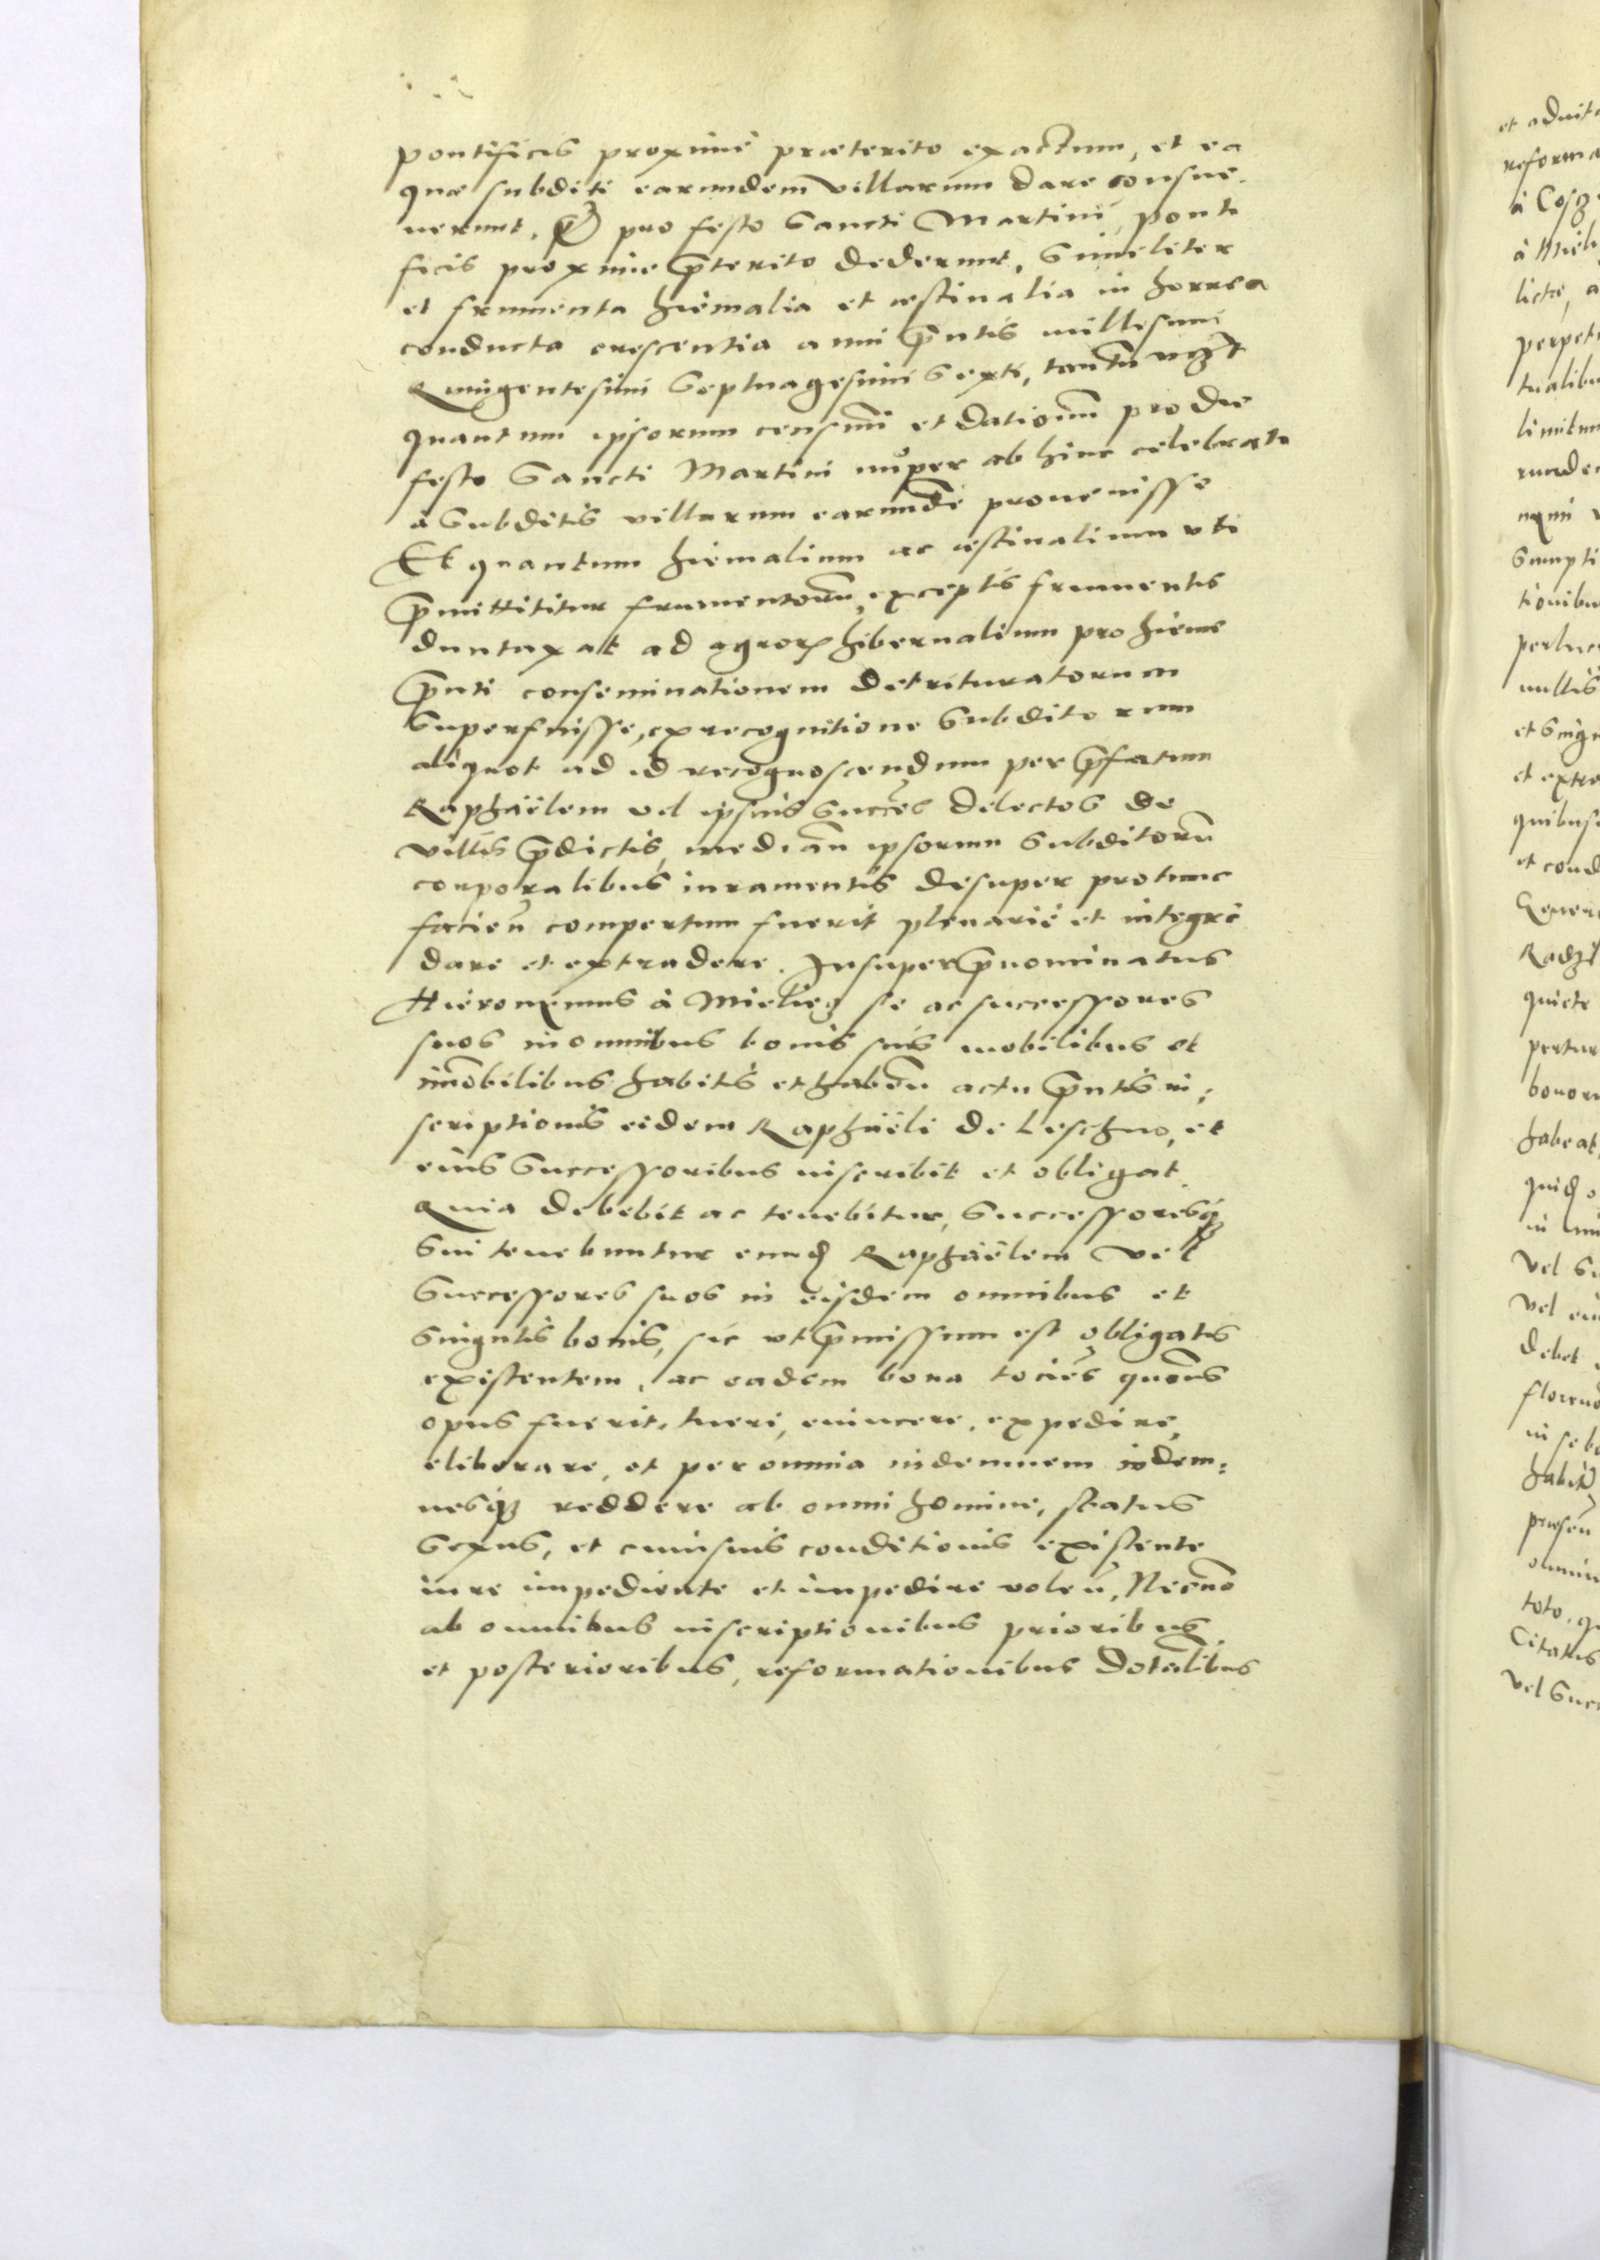 pontificis proximè præterito exactum, et ea
quæ subditi earundem villarum dare consue-
uerunt, pro festo Sancti Martini, ponti
ficis proxime p̃terito dederunt, Similiter
et frumenta hiemalia et æstiualia in horrea
conducta crescentia anni p̃ntis millesimi
Quingentesimi Septuagesimi Sexti, tantũ
quantum ipsorum censuum et dationum pro die
festo Sancti Martini nuper ab hinc celebrato
à Subditis villarum earundẽ prouenisse
Et quantum hiemalium ac æstiualium vti
p̃mittititur frumentorũ, exceptis frumentis
duntaxat ad agroꝝ hibernalium pro hieme
p̃nti conseminationem detrituratorum
Superfuisse, ex recognitione Subditorum
aliquot ad id recognoscendum per p̃fatum
Raphaëlem vel ipsius Succes̃ delectos de
villis p̃dictis, median̄ ipsorum Subditorũ
corporalibus iuramentis desuper pro tunc
facien̄ compertum fuerit plenariè et integrè
dare et extradere. Insuper p̃nominatus
Hieronymus à Mielięcz se ac successores
suos in omnibus bonis suis mobilibus et
im̃obilibus habitis et haben̄ actu p̃ntis in:
scriptionis eidem Raphaëli de Leschno, et
eius Successoribus inscribit et obligat.
Quia debebit ac tenebitur, Successoresq̃
Sui tenebuntur eund̃ Raphaëlem vel
Successores suos in eisdem omnibus et
Singulis bonis, sic vt p̃missum est obligatis
existentem, ac eadem bona tocies quotiẽs
opus fuerit, tueri, euincere, expedire,
eliberare, et per omnia indemnem indem:
nesq̃ reddere ab omni homine, status
Sexus, et cuiusuis conditionis existente
in re impediente et impedire volen̄, Necnõ
ab omnibus inscriptionibus prioribus
et posterioribus, reformationibus dotalibus
et aduita
reforma
à Mieli
perpetu
tualibu
limitum
Sumpti
tionibu
nullis
et Singu
et extra
quibus
et cond
quiete
pertur
bonoru
habeat
vel Su
vel eiu
debet
in se
omnium
toto, q
Citatus
vel Succ